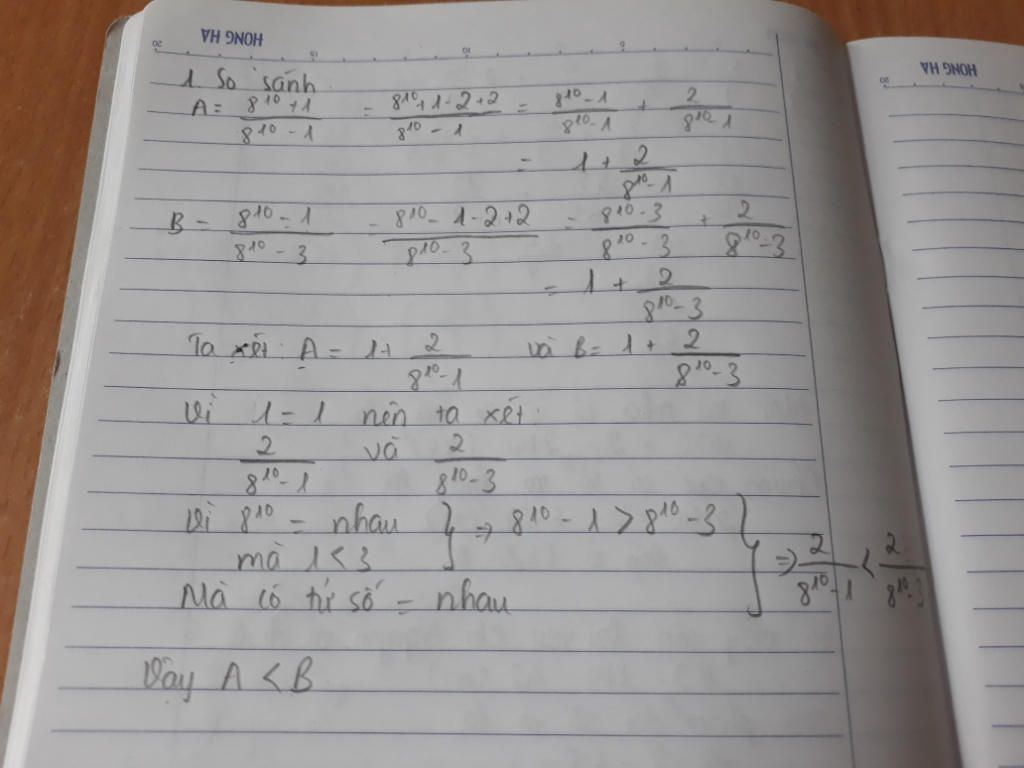 HONG HA
20 15 10 5
HONG HA
20
1. So sánh
A = (8^10 + 1)/(8^10 - 1) = (8^10 + 1 - 2 + 2)/(8^10 - 1) = (8^10 - 1)/(8^10 - 1) + 2/(8^10 - 1)
= 1 + 2/(8^10 - 1)
B = (8^10 - 1)/(8^10 - 3) = (8^10 - 1 - 2 + 2)/(8^10 - 3) = (8^10 - 3)/(8^10 - 3) + 2/(8^10 - 3)
= 1 + 2/(8^10 - 3)
Ta xét: A = 1 + 2/(8^10 - 1) và B = 1 + 2/(8^10 - 3)
Vì 1 = 1 nên ta xét:
2/(8^10 - 1) và 2/(8^10 - 3)
Vì 8^10 = nhau } => 8^10 - 1 > 8^10 - 3
mà 1 < 3 } => 2/(8^10 - 1) < 2/(8^10 - 3)
Mà có tứ số = nhau
Vậy A < B